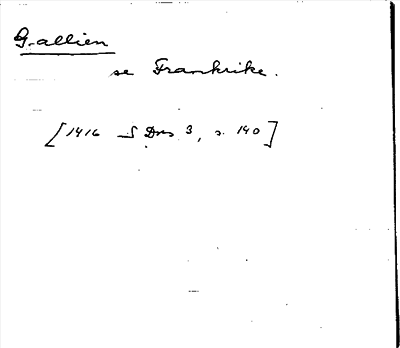 Gallien
se Frankrike.
[1416 Dns 3, s. 140]